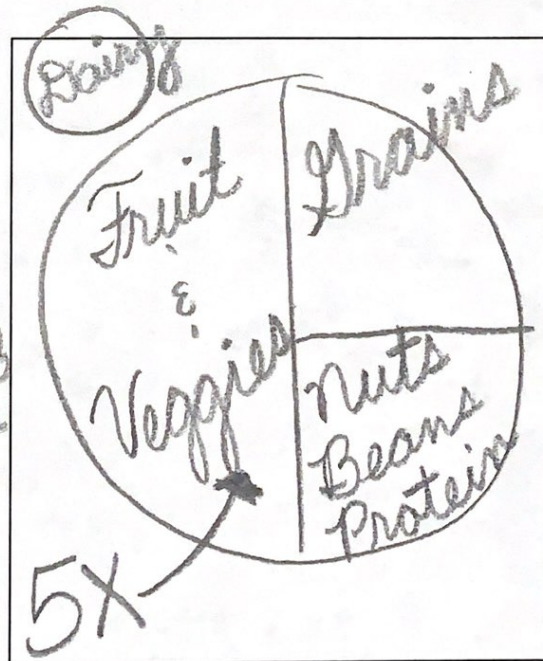 Dairy
Fruit
&
Veggies
Grains
Nuts
Beans
Protein
5X